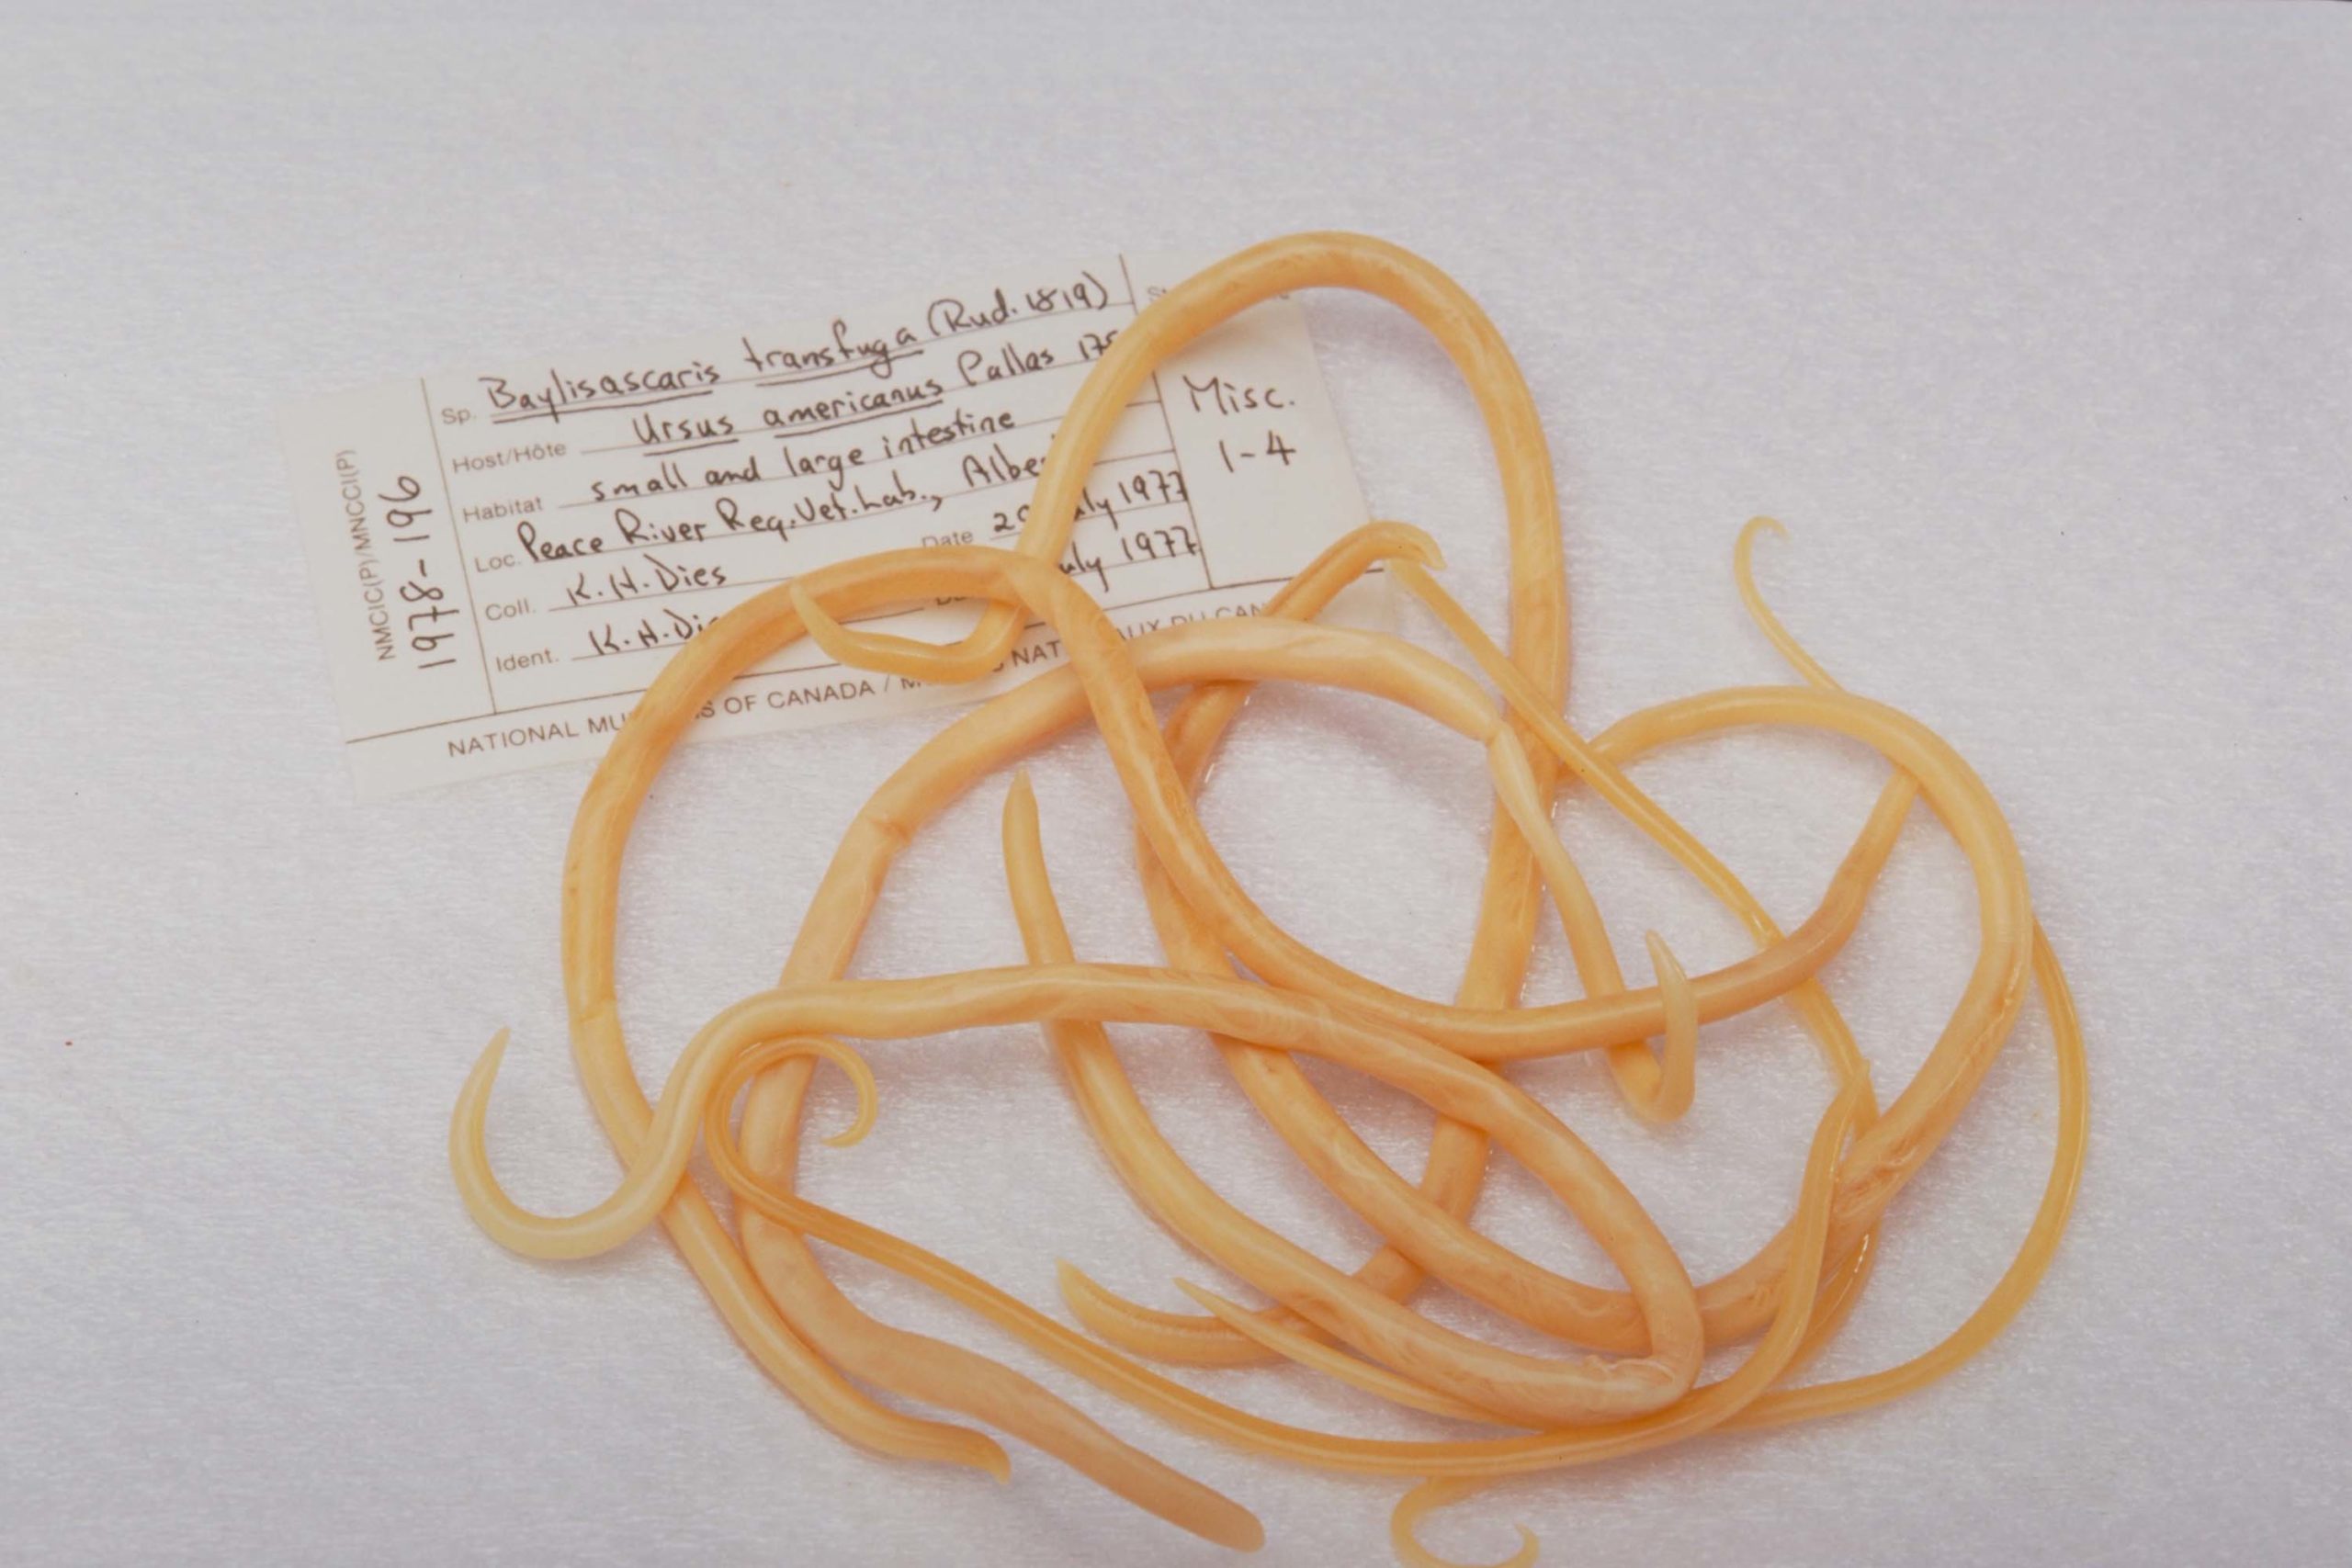 NMCIC(P)/MNCCI(P)
1978-196
Sp. Baylisascaris transfuga (Rud. 1819)
Host/Hôte Ursus americanus Pallas
Habitat small and large intestine
Loc. Peace River Reg. Vet. Lab.,
Coll. K.H. Dies Date 1977
Ident. K.H. 1977
Misc.
1-4
NATIONAL OF CANADA /